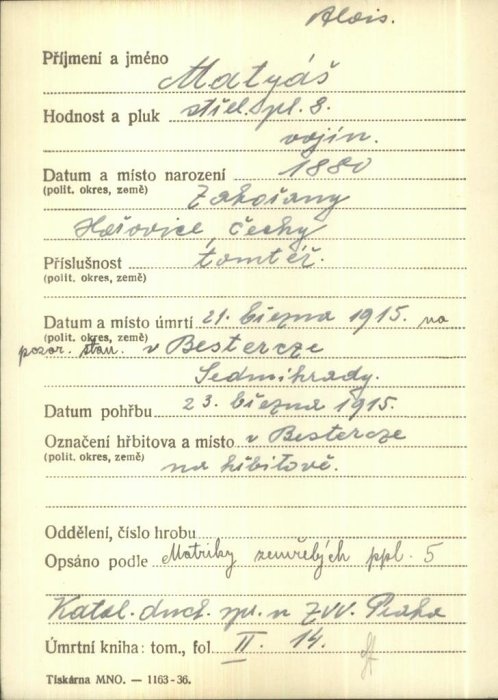 Alois.
Příjmení a jméno Matyáš
Hodnost a pluk střel. pl. 8.
vojín.
Datum a místo narození 1880
(polit. okres, země) Zahořany
Hořovice, Čechy
Příslušnost tomtéž.
(polit. okres, země)
Datum a místo úmrtí 21. března 1915. na
(polit. okres, země)
pozor. stan. v Bestercze
Sedmihrady.
Datum pohřbu 23. března 1915.
Označení hřbitova a místo v Bestercze
(polit. okres, země) na hřbitově.
Oddělení, číslo hrobu
Opsáno podle Matriky zemřelých ppl. 5
Katol. duch. spr. u ZVV. Praha
Úmrtní kniha: tom., fol. II. 14.
Tiskárna MNO. — 1163-36.